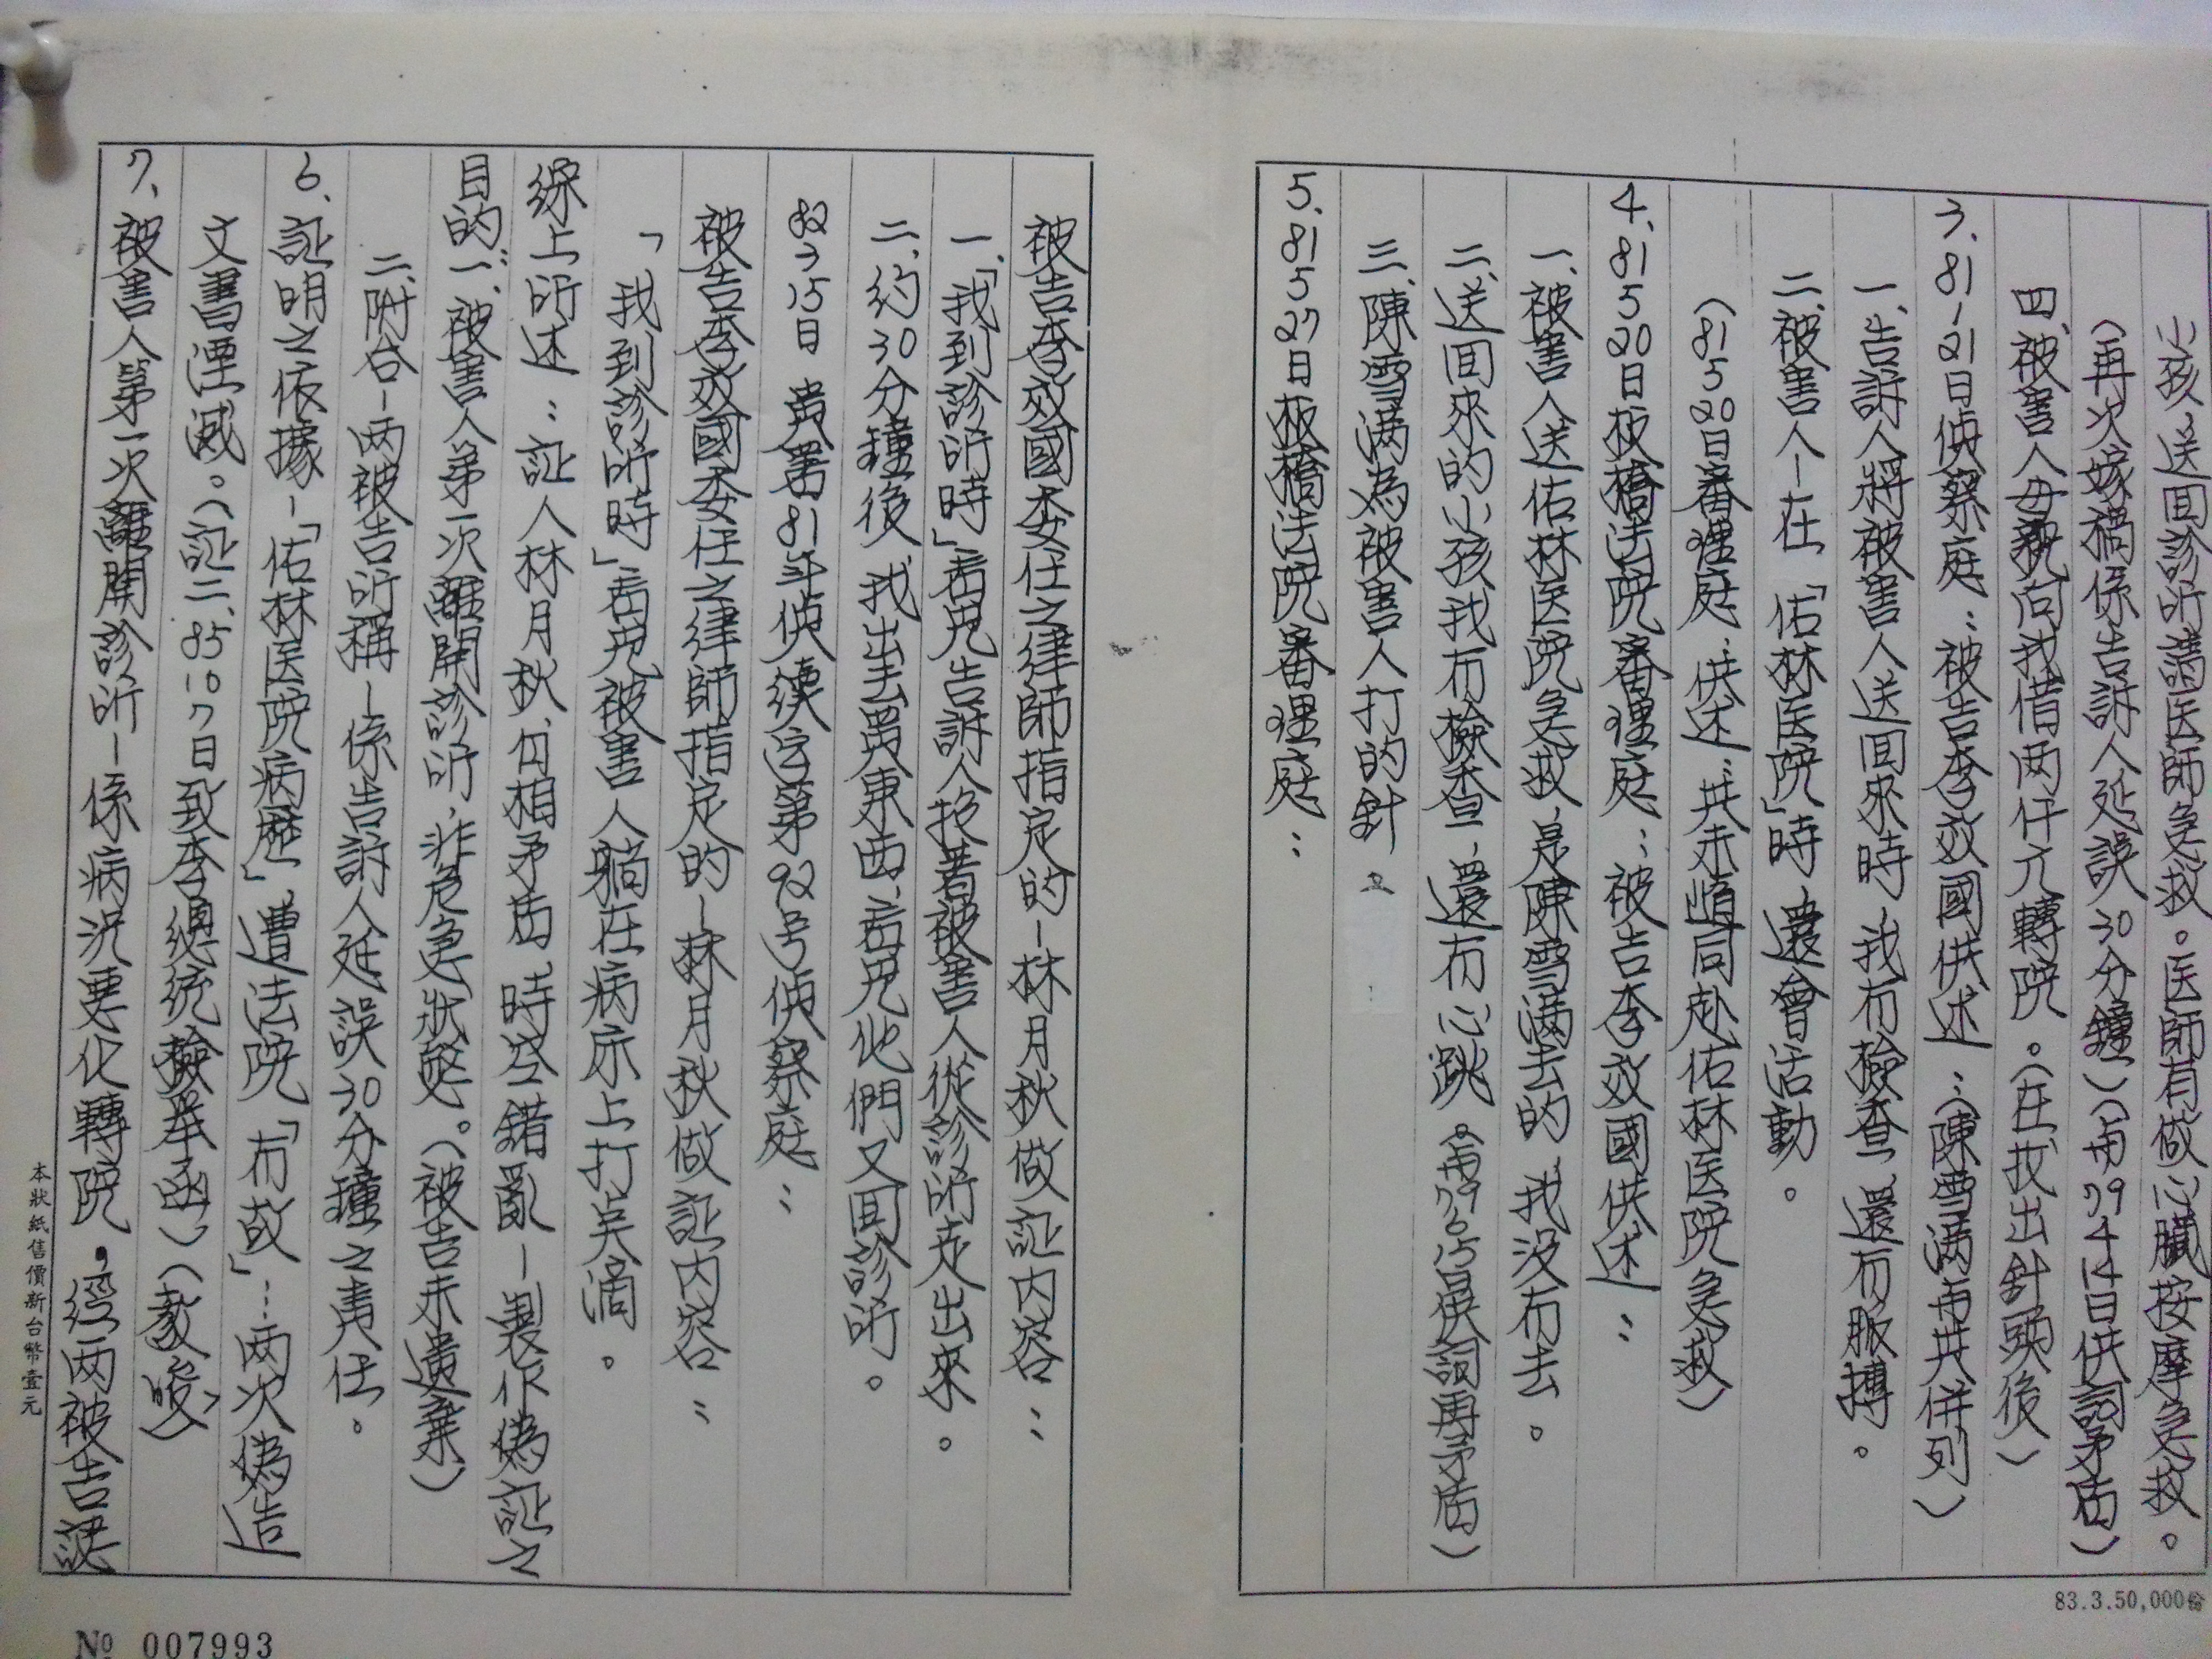 小孩送回診所請医師急救。医師有做心臟按摩急救。
(再次嫁禍係告訴人延誤30分鐘)(与79 4 14日供詞矛盾)
四、被害人母親向我借両仟元轉院。(在拔出針頭後)
3、81 1 21日偵察庭:被告李效國供述:(陳雪满再共併列)
一、告訴人將被害人送回來時 我有檢查、還有脈搏。
二、被害人-在「佑林医院」時、還會活動。
(81 5 20日審理庭:供述:共未道同赴佑林医院急救)
4、81 5 20日板橋法院審理庭:被告李效國供述:
一、被害人送佑林医院急救、是陳雪满去的、我没有去。
二、送回來的小孩我有檢查、還有心跳。(与79 6 15日供詞再矛盾)
三、陳雪满為被害人打的針。
5、81 5 27日板橋法院審理庭:
被告李效國委任之律師指定的-林月秋做証内容:
一、「我到診所時」看見告訴人抱着被害人從診所走出來。
二、約30分鐘後 我出去買東西、看見他們又回診所。
82 3 15日 貴署81年偵續字第92号偵察庭:
被告李效國委任之律師指定的-林月秋做証内容:
「我到診所時」看見被害人躺在病床上打点滴。
綜上所述:証人林月秋、自相矛盾、時空錯亂-製作偽証之
目的:一、被害人第一次離開診所、非危急狀態。(被告未遺棄)
二、附合-両被告所稱-係告訴人延誤30分鐘之責任。
6、証明之依據-「佑林医院病歷」、遭法院「有故」…両次偽造
文書湮滅。(証三、85 10 7日致李總統檢举函)(教唆)
7、被害人第一次離開診所-係病況変化轉院,經両被告認
本狀紙售價新台幣壹元
83.3.50,000份
№ 007993